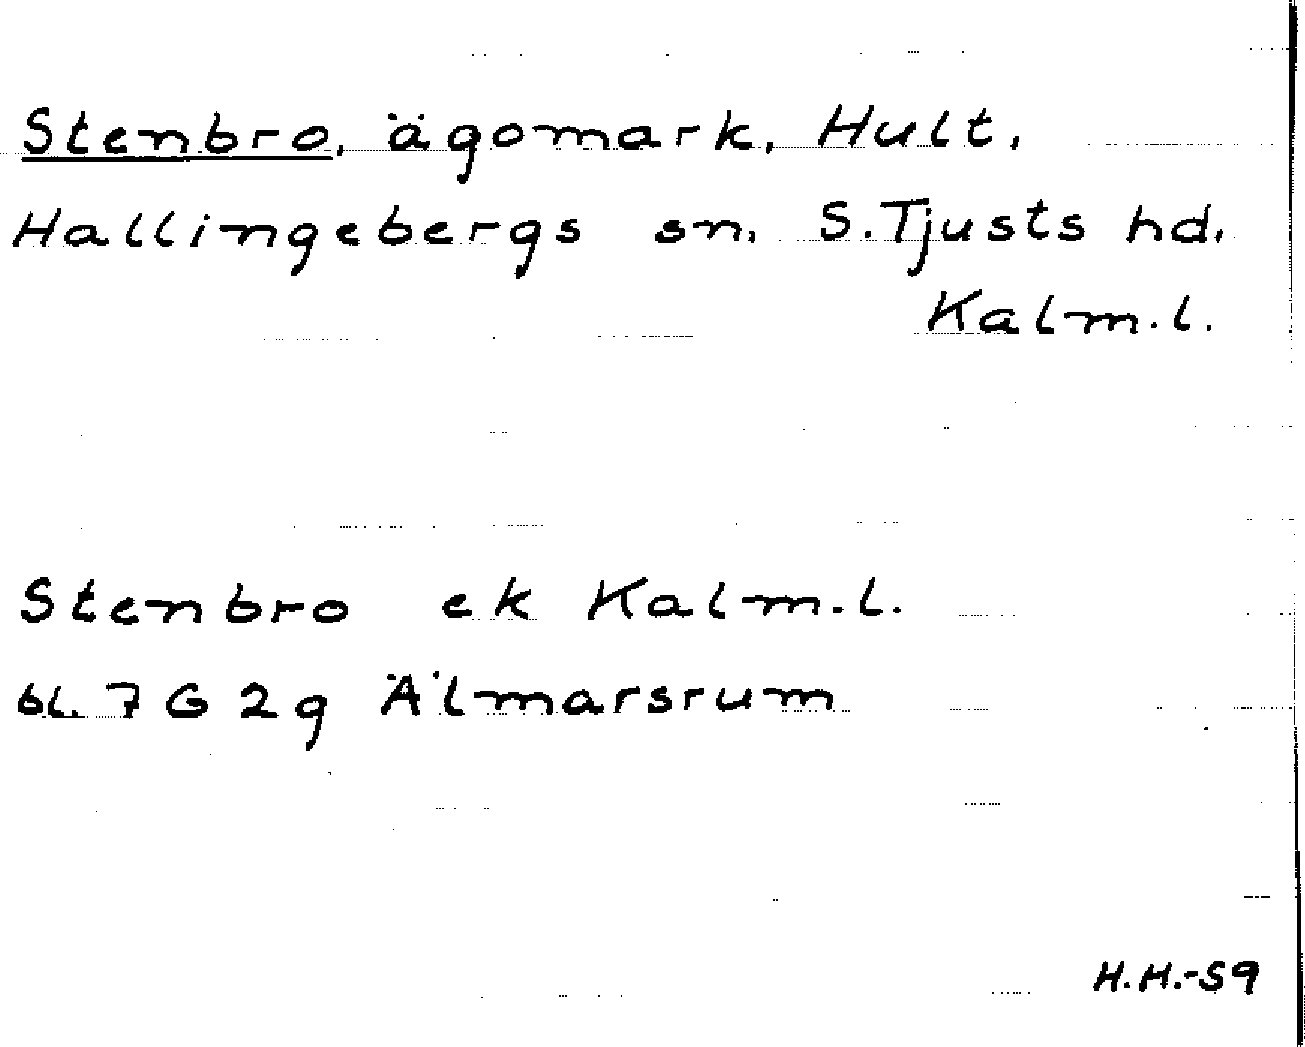 Stenbro, ägomark, Hult,
Hallingebergs sn, S. Tjusts hd,
Kalm.l.
Stenbro ek Kalm.l.
bl. 7 G 2g Älmarsrum
H.H.-59